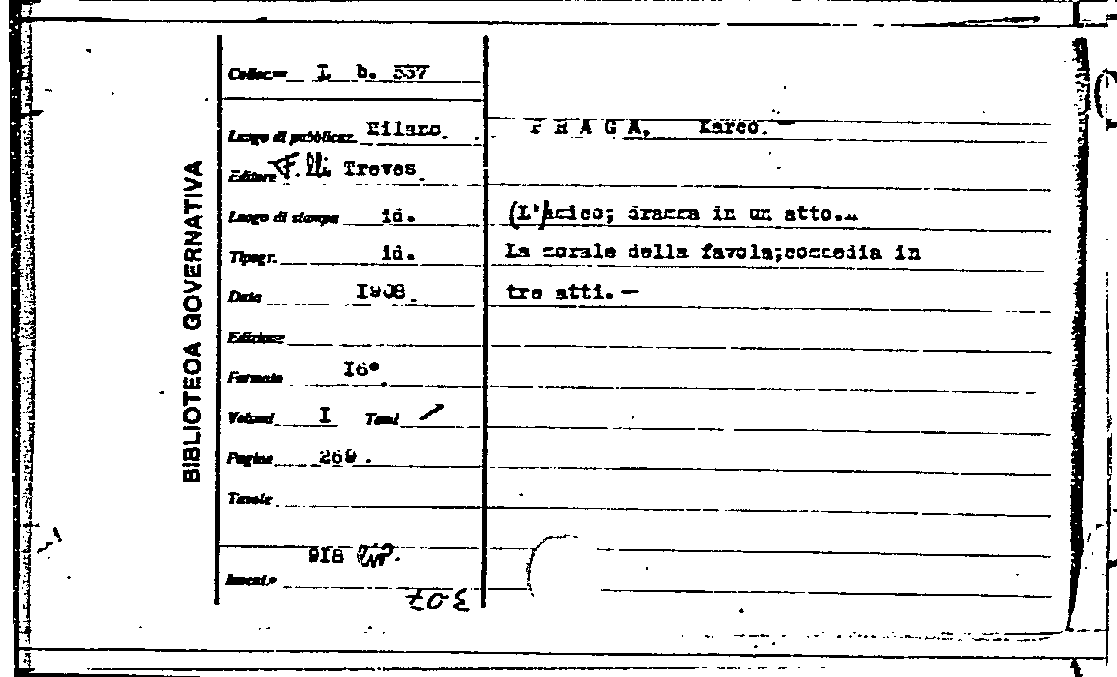 BIBLIOTECA GOVERNATIVA
Colloc.ne I. b. 337
Luogo di pubblicaz. Milano
Editore F.lli Treves
Luogo di stampa id.
Tipogr. id.
Data I908
Edizione
Formato I6°
Volumi I Tomi
Pagine 269.
Tavole
918
Invent.º
307
P R A G A, Marco. -
(L'Amico; dramma in un atto...
La morale della favola;commedia in
tre atti. -